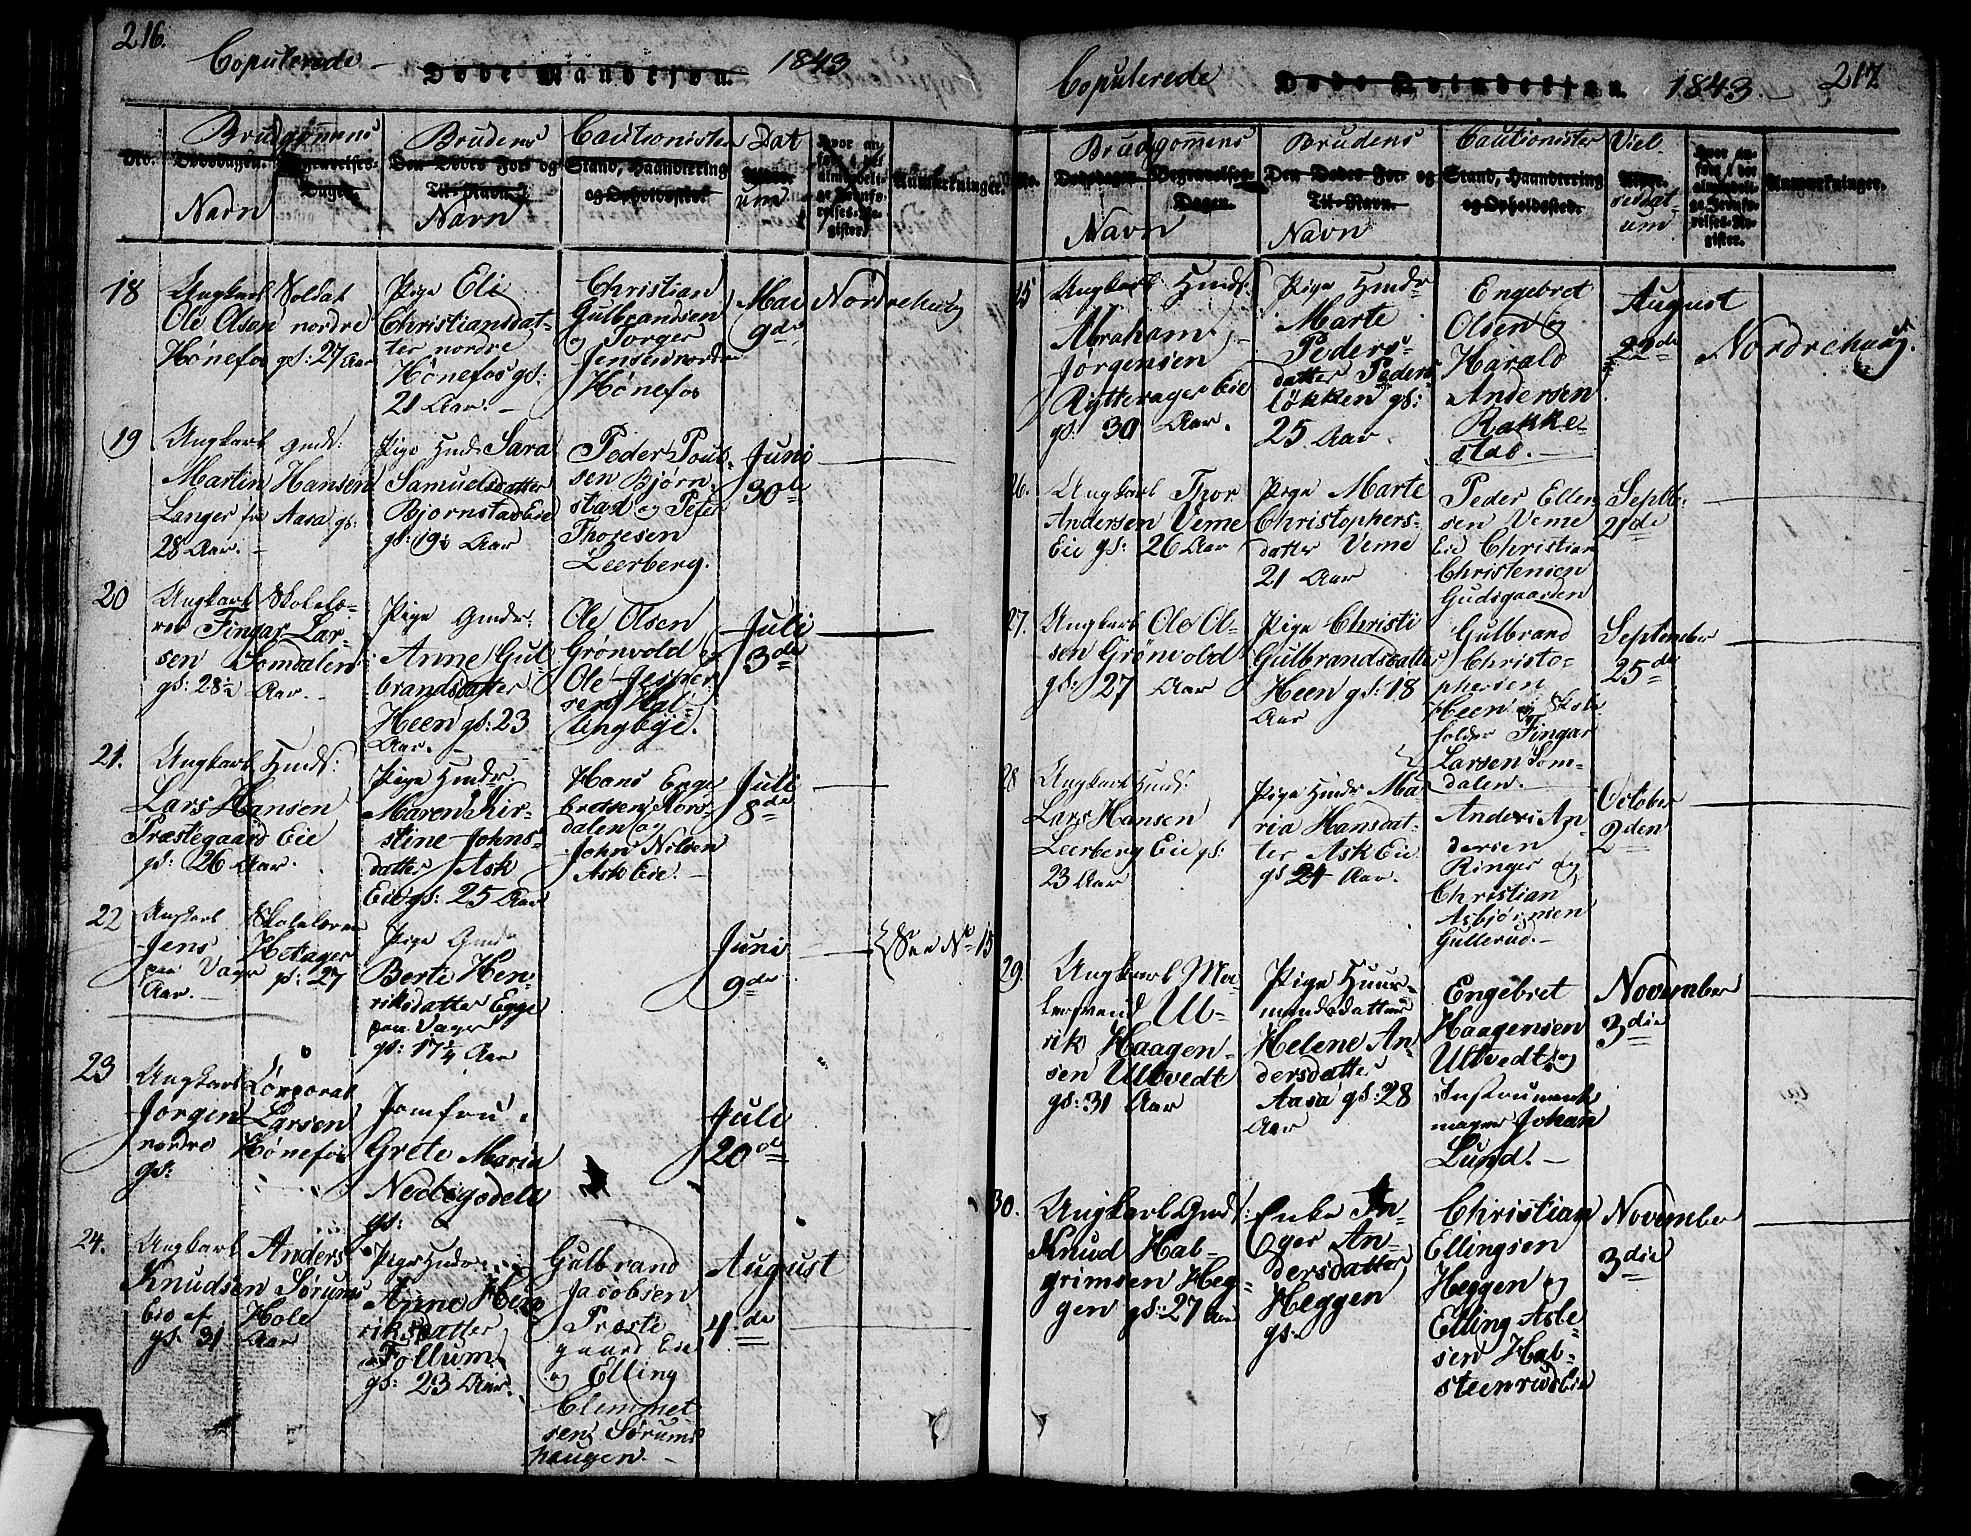 216.
Copulerede
Døde Mandkjøn.
1843
No.
Brudgommens
Dødsdagen. Begravelses-
Dagen.
Navn
Brudens
Den Dødes For- og
Til-Navn
Navn
Cautionister
Stand, Haandtering
og Opholdssted.
Dat
Alder
um
Hvor an-
ført i det
almindeli-
ge Jevnfø-
relses-Re-
gister.
Anmærkninger.
18
Ungkarl Soldat
Ole Olsen nordre
Hønefos gs: 27 Aar
Pige Eli
Christiansdat-
ter nordre
Hønefos gs:
21 Aar. -
Christian
Gulbrandsen
og Torger
Jensen nordre
Hønefos
Mai
9de
Nordrehaug
19
Ungkarl gmds:
Martin Hansen
Langer fra Aasa gs:
28 Aar. -
Pige Hmds Sara
Samuelsdatter
Bjornstad Eie
gs: 19½ Aar
Peder Poul-
sen Bjørn-
stad og Peter
Thoresen
Leerberg.
Juni
30te
20
Ungkarl Skolelæ-
rer Fingar Lar-
sen Somdalen
gs: 28½ Aar. -
Pige Gmdr:
Anne Gul-
brandsdatter
Heen gs: 23
Aar. -
Ole Olsen
Grønvold og
Ole Jesper-
sen Hal-
lingbye.
Juli
3de
21.
Ungkarl Hmds:
Lars Hansen
Præstegaard Eie
gs: 26 Aar.
Pige Hmdr:
Maren Kir-
stine Johns-
datter Ask
Eie gs: 25 Aar
Hans Enge-
bretsen
dalen og
John Nilsen
Ask Eie. -
Juli
8de
22
Ungkarl Skolelærer
Jens Hetager
paa Vager gs: 27
Aar. -
Pige Gmds
Berte Hen-
riksdatter Egge
paa Vager
gs: 17¼ Aar
Juni
9de
See No 15
23
Ungkarl Corporal
Jorgen Larsen
nordre Hønefos
gs:
Jomfru
Grete Maria
gs:
Juli
20de
24.
Ungkarl Anders
Knudsen Sørums
eie af Hole
gs: 31 Aar
Pige Hmdr:
Anne Hen-
riksdatter
Follum
gs: 23 Aar.
Gulbrand
Jacobsen
Præste-
gaard Eie
og Elling
Clemmet-
sen Sørums-
haugen. -
August
4de
Copulerede
Døde Qvindekjøn.
1843. -
217
No.
Brudgommens
Dødsdagen. Begravelses-
Dagen.
Navn
Brudens
Den Dødes For- og
Til-Navn.
Navn
Cautionister
Stand, Haandtering
og Opholdssted.
Viel-
Alder.
sesdat-
um
Hvor an-
ført i det
almindeli-
ge Jevnfø-
relses-Re-
gister.
Anmærkninger.
25
Ungkarl Hmds:
Abraham
Jørgensen
Rytterager Eie
gs: 30 Aar.
Pige Hmdr
Marte
Peders-
datter Peders-
løkken gs:
25 Aar.
Engebret
Olsen og
Harald
Andersen
Rakke-
stad. -
August
22de
Nordrehaug.
26.
Ungkarl Thor
Andersen Veme
Eie gs: 26 Aar
Pige Marte
Christophers-
datter Veme
21 Aar
Peder Ellen-
sen Veme
Eie Christian
Christensen
Gudsgaarden
Septbr
21de
27.
Ungkarl Ole Ol-
sen Grønvold
gs: 27 Aar
Pige Christi
Gulbrandsdatter
Heen gs: 18
Aar
Gulbrand
Christo-
phersen
Heen og Skole-
holder Fingar
Larsen Som-
dalen. -
September
25de
28
Ungkarl Hmds:
Lars Hansen
Leerberg Eie gs:
23 Aar
Pige Hmdr Ma-
ria Hansdat-
ter Ask Eie
gs 24 Aar.
Anders An-
dersen
Ringer og
Christian
Asbjørnsen
Gullerud. -
October
2den
29.
Ungkarl Ma-
lersvend Ul-
rik Haagen-
sen Ultvedt
gs: 31 Aar
Pige Huus-
mandsdatter
Helene An-
dersdatter
Aasa gs: 28
Aar
Engebret
Haagensen
Ultvedt og
Instrument-
mager Johan
Lund. -
November
3die
30.
Ungkarl Gmds:
Knud Hal-
grimsen Heg-
gen gs: 27 Aar
Enke In-
ger An-
dersdatter
Heggen
gs.
Christian
Ellingsen
Heggen og
Elling Asle-
sen Hal-
steenrud Eie
November
3die